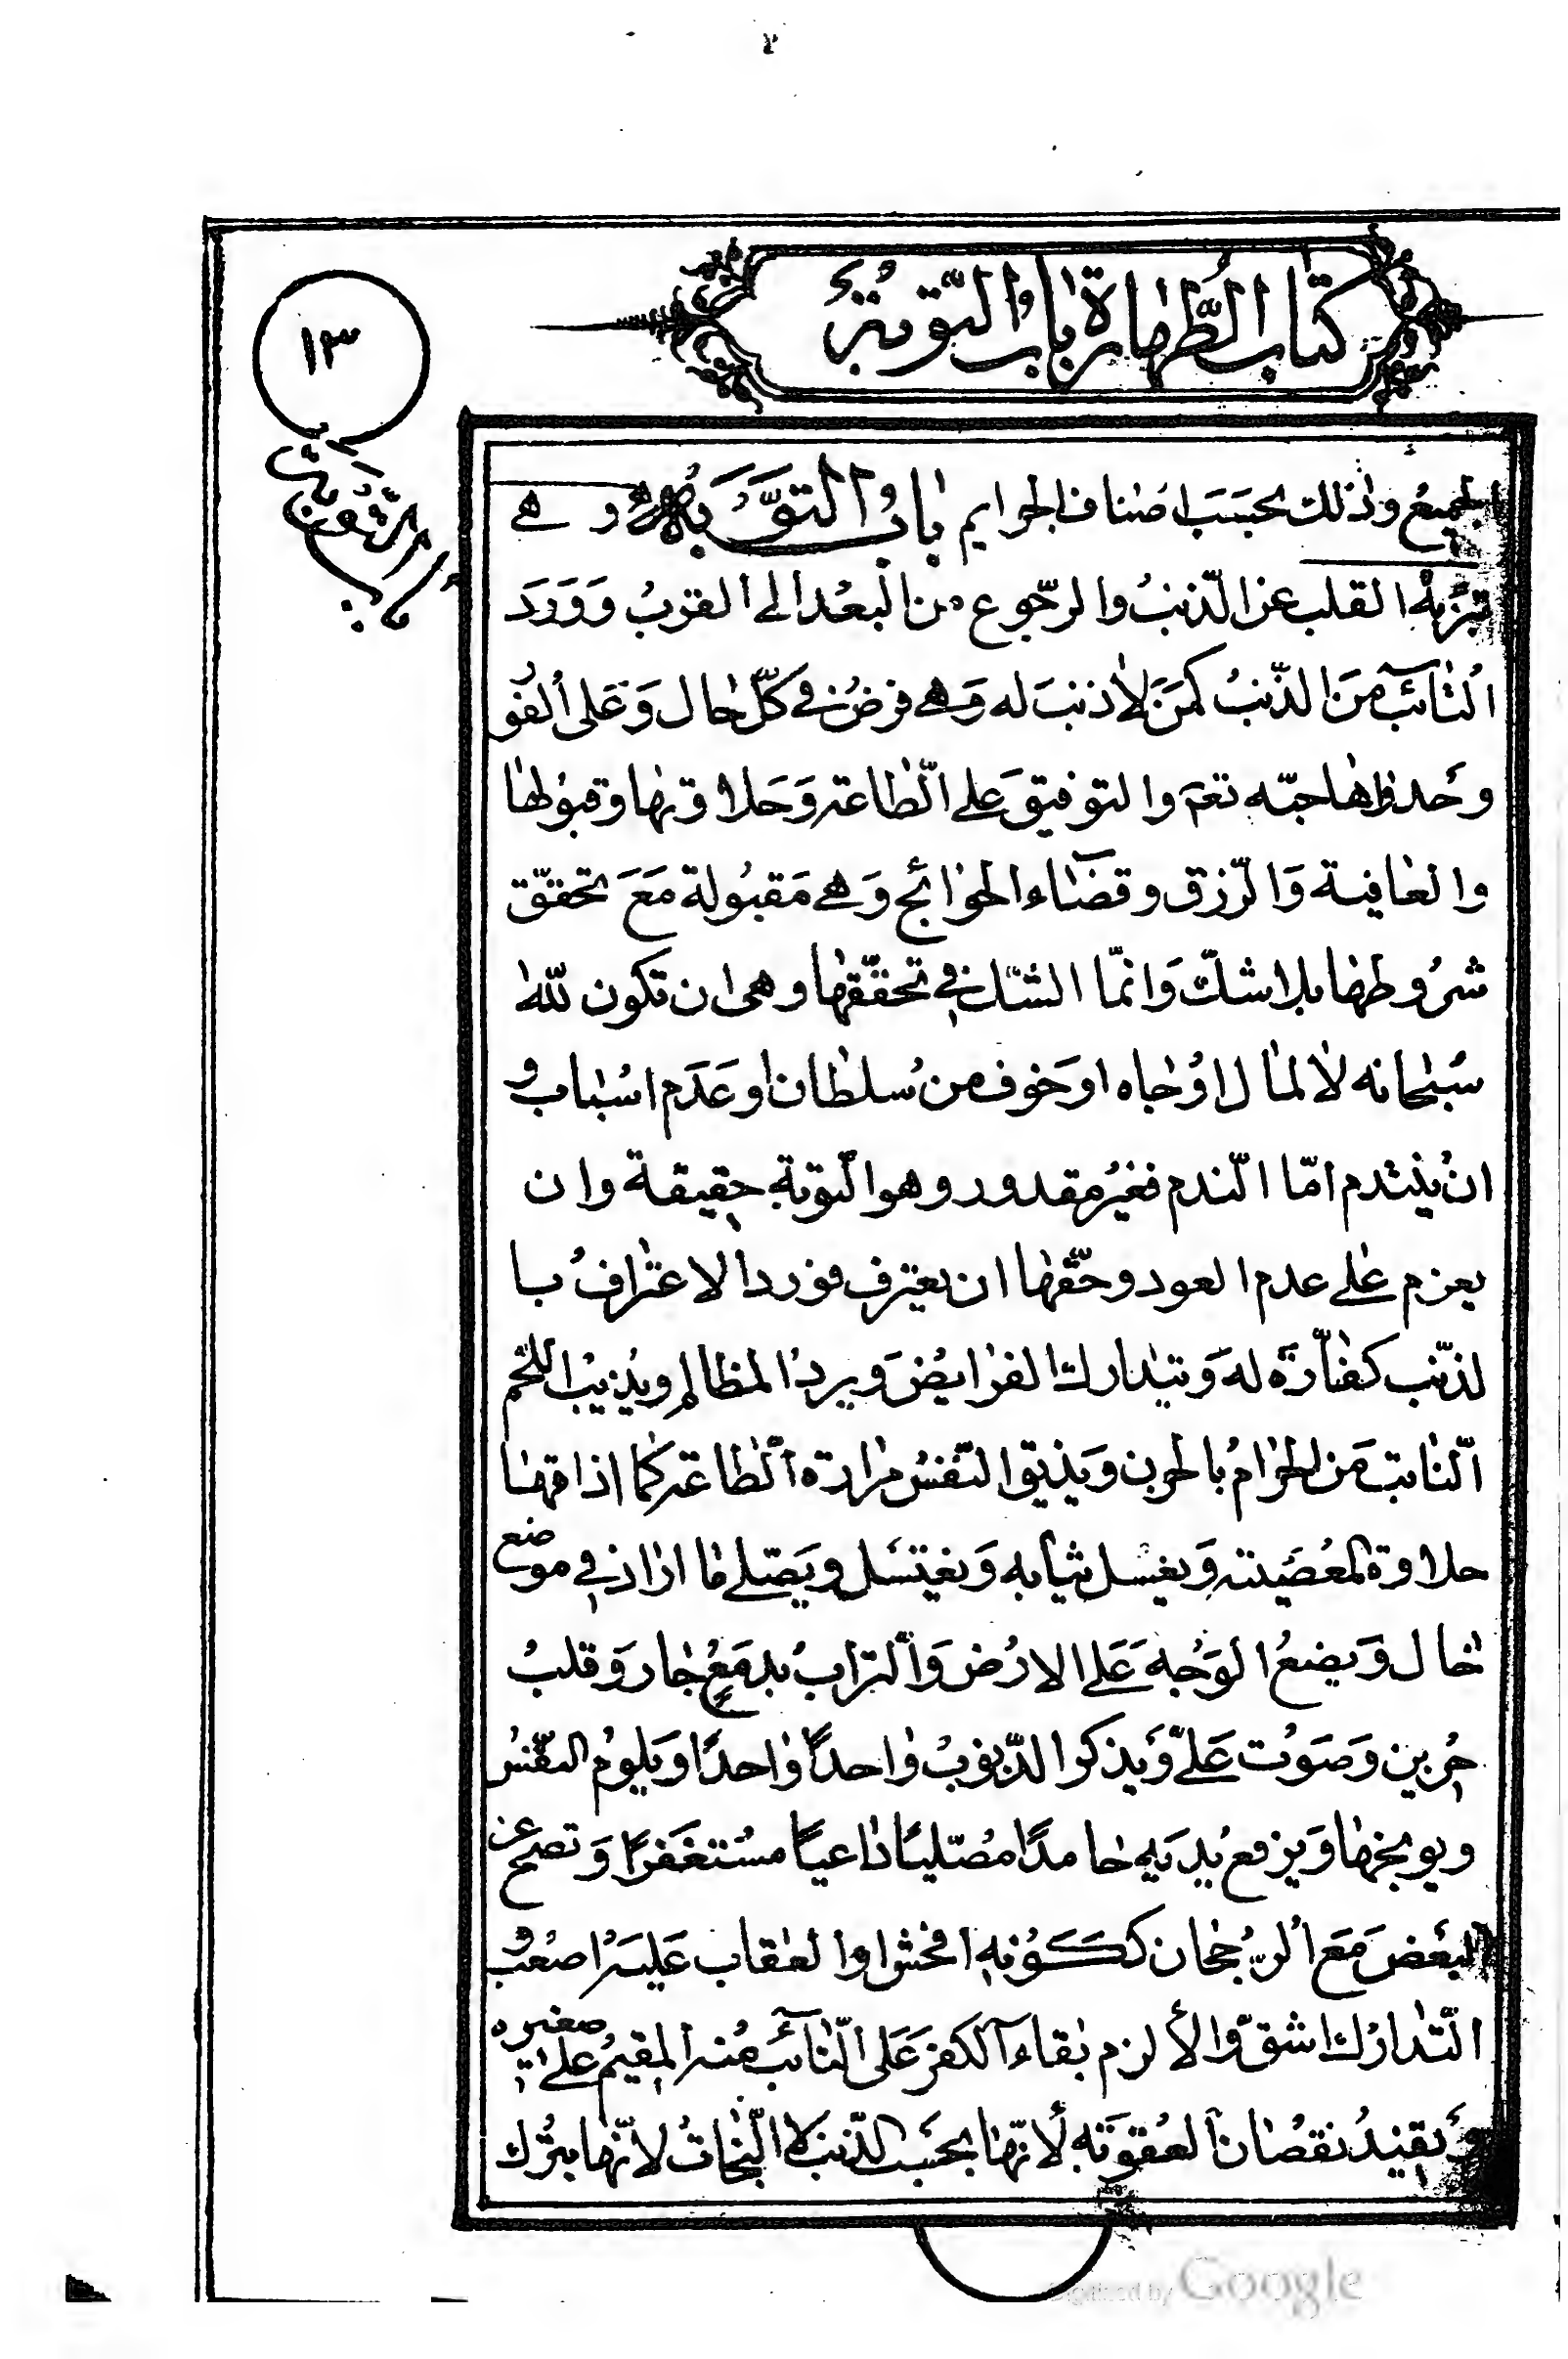 كتاب الطهارة باب التوبة
١٣
باب التوبة
الجميع وذلك بحسب اصناف الجرايم باب التوبة وهي
تنزيه القلب عن الذنب والرجوع من البعد الى القرب وورد
التائب من الذنب كمن لا ذنب له وهي فرض في كل حال وعلى الفو
حبه تعم والتوفيق على الطاعة وحلاوتها وقبولها
والعافية والرزق وقضاء الحوائج وهي مقبولة مع تحقق
شروطها بلا شك وانما الشك في تحققها وهي ان تكون لله
سبحانه لا لمال او جاه او خوف من سلطان او عدم اسباب و
ان يتندم اما الندم فغير مقدور وهو التوبة حقيقة وان
يعزم على عدم العود وحقها ان يعترف فورد الاعتراف با
لذنب كفارة له ويتدارك الفرايض ويرد المظالم ويذيب اللحم
النابت من الحرام بالحزن ويذيق النفس مرارة الطاعة كما اذاقها
حلاوة المعصية ويغسل ثيابه ويغتسل ويصلى ما اراد في موضع
خال ويضع الوجه على الارض والتراب بدمع جار وقلب
حزين وصوت على ويذكر الذنوب واحدا واحدا ويلوم النفس
ويوبخها ويرفع يديه حامدا مصليا داعيا مستغفرا وتصح عن
البعض مع الرجحان ككونه افحش او العقاب عليه اصعب و
التدارك اشق والا لزم بقاء الكفر على التائب منه المقيم على صغيره
ويفيد نقصان العقوبة لانها بحسب الذنب لا النجاة لانها بترك
Digitized by Google